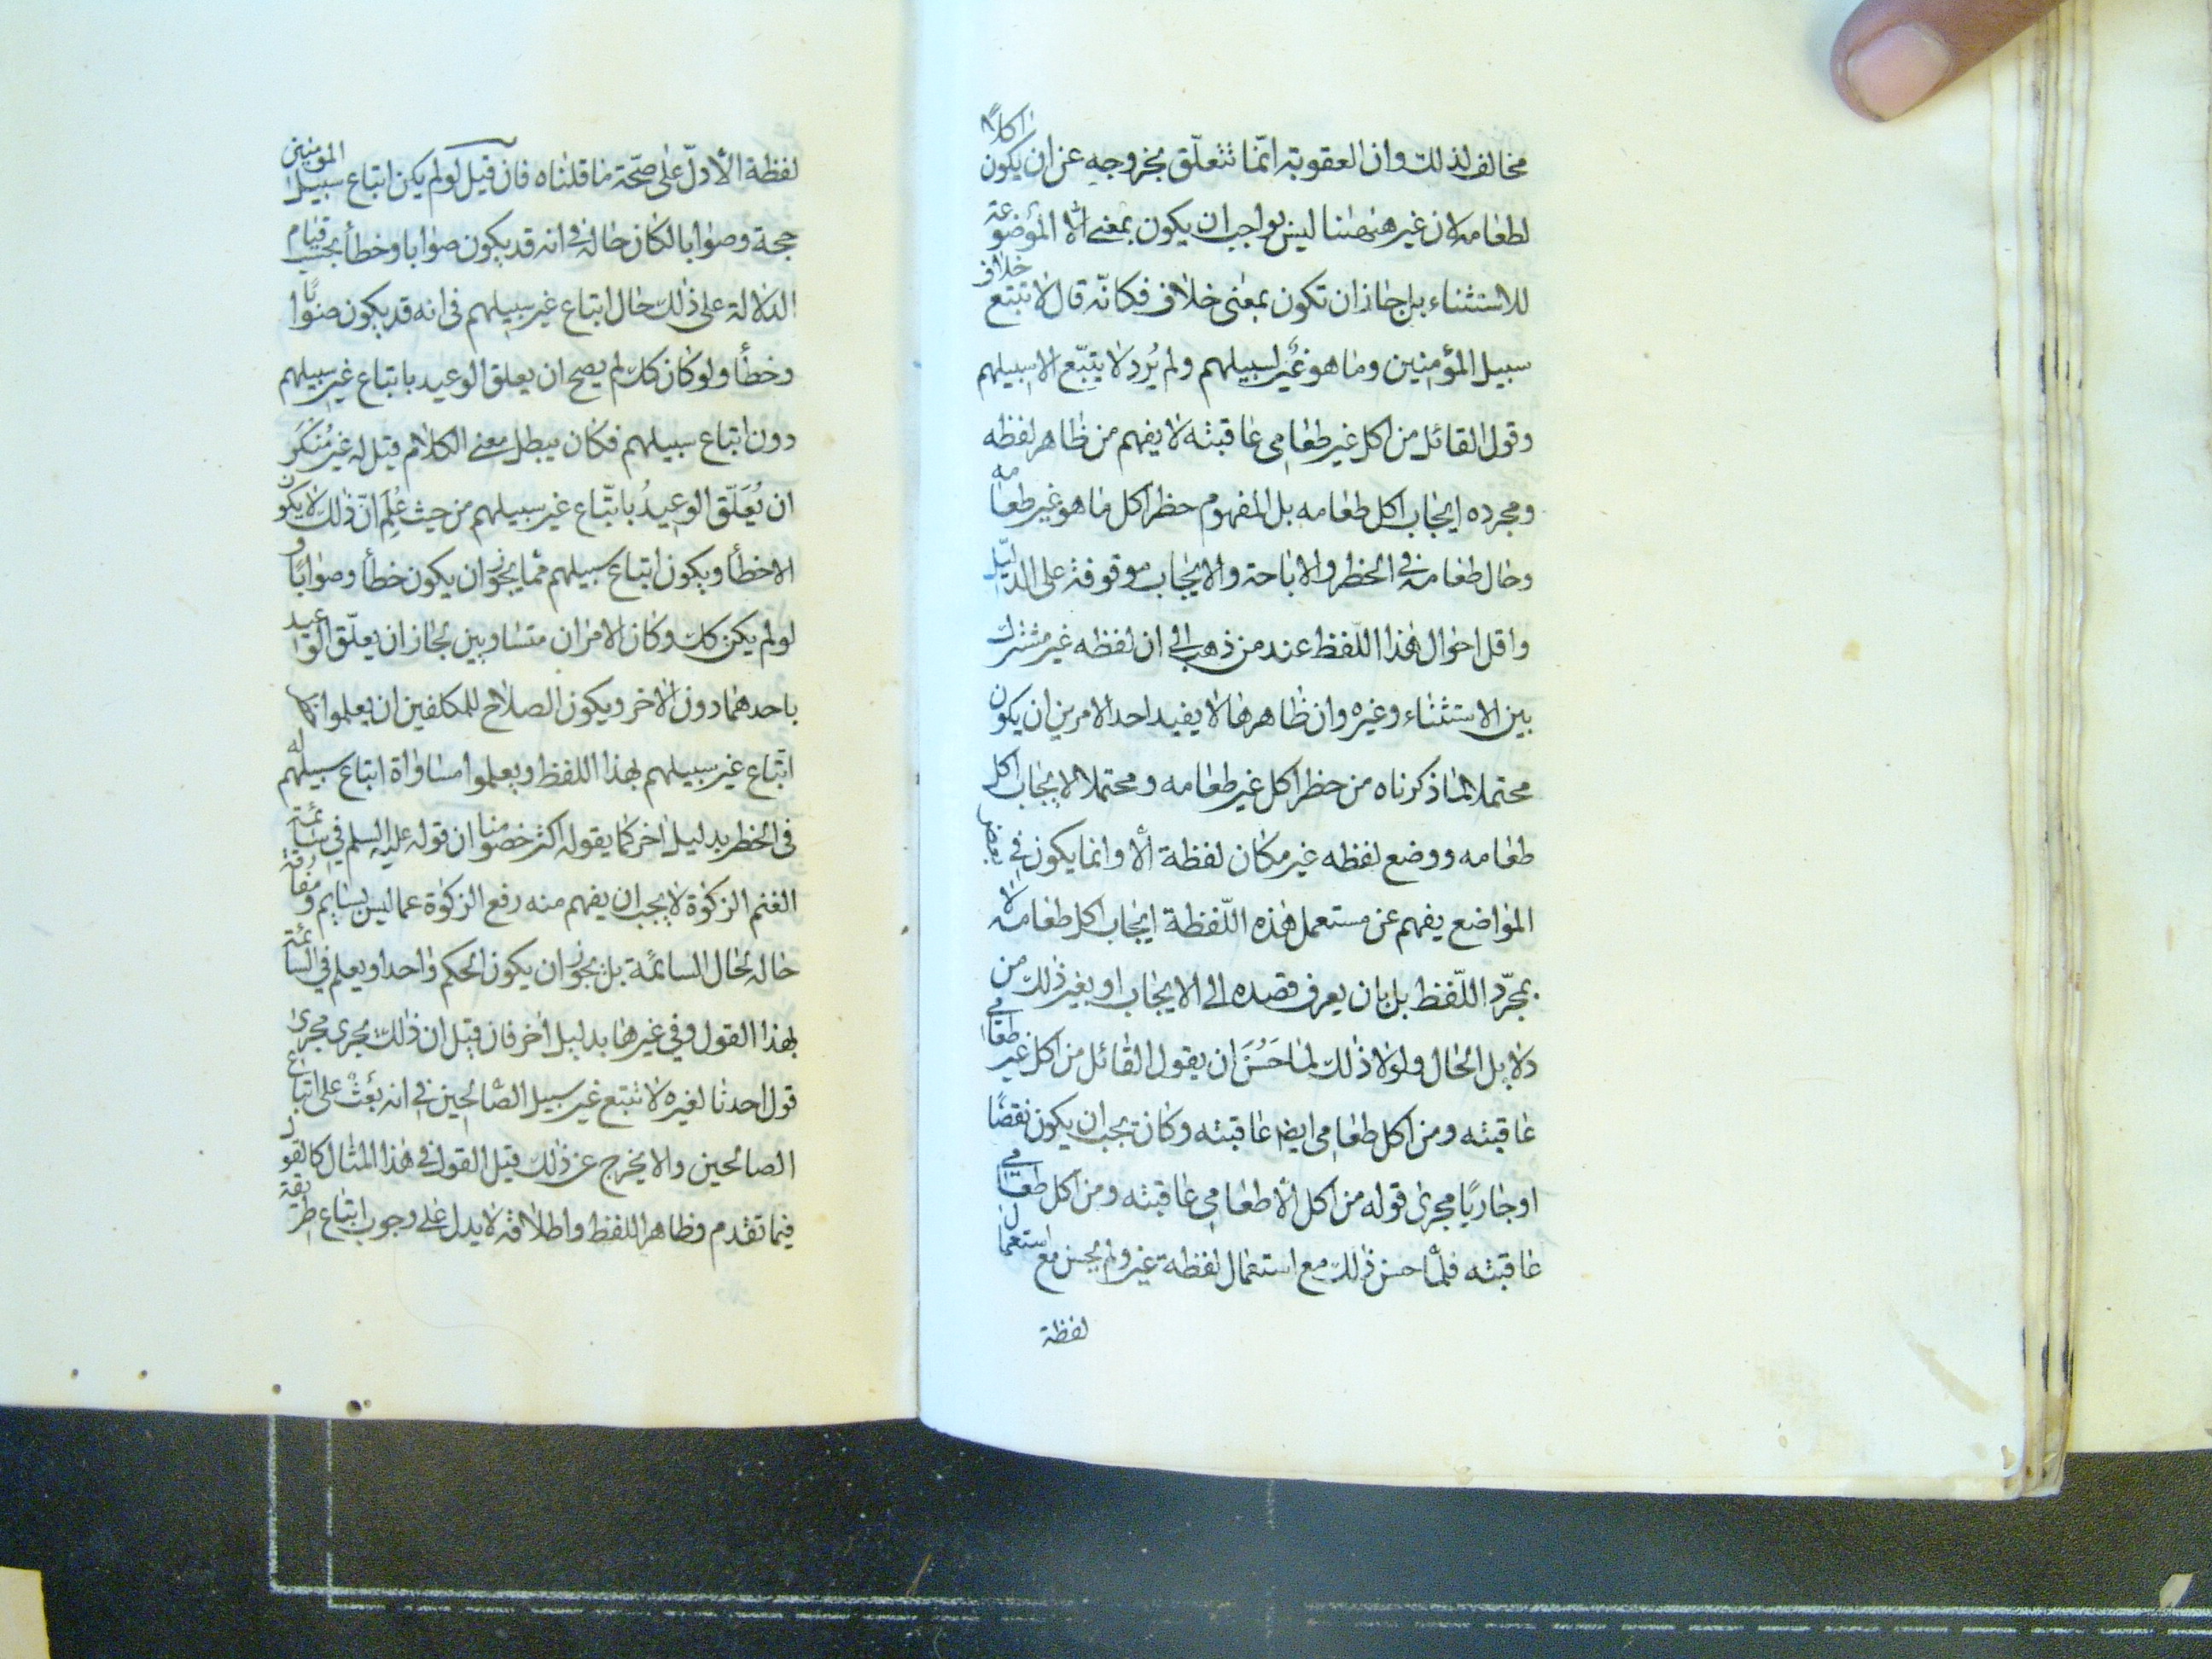 مخالف لذلك وان العقوبة انما تتعلق بخروجه عن ان يكون اكلا
لطعامه لان غير هيهنا ليس بواجب ان يكون بمعنى الّا الموضوعة
للاستثناء بل جاز ان تكون بمعنى خلاف فكانّه قال لا تتبع خلاف
سبيل المؤمنين وما هو غير لسبيلهم ولم يُرد لا يتبّع الا سبيلهم
وقول القائل من اكل غير طعامى عاقبته لا يفهم من ظاهر لفظه
ومجرده ايجاب اكل طعامه بل المفهوم حظر اكل ما هو غير طعامه
وحال طعامه فى الحظر والاباحة والايجاب موقوفة على الدليل
واقل احوال هذا اللّفظ عند من ذهب الى ان لفظه غير مشترك
بين الاستثناء وغيره وان ظاهرها لا يفيد احد الامرين ان يكون
محتملا لما ذكرناه من حظر اكل غير طعامه ومحتملا لايجاب اكل
طعامه ووضع لفظه غير مكان لفظة الّا وانما يكون فى بعض
المواضع يفهم عن مستعمل هذه اللّفظة ايجاب اكل طعامه لا
بمجرّد اللّفظ بل بان يعرف قصده الى الايجاب او بغير ذلك من
دلايل الحال ولولا ذلك لما حَسُنَ ان يقول القائل من اكل غير طعامى
عاقبته ومن اكل طعامى ايضا عاقبته وكان يجب ان يكون نقضًا
او جاريًا مجرى قوله من اكل الّا طعامى عاقبته ومن اكل طعامى
عاقبته فلمّا حسن ذلك مع استعمال لفظة غير ولم يحسن مع استعمال
لفظة
لفظة الّا دلّ على صحّة ما قلناه فان قيل لو لم يكن اتباع سبيل المومنين
حجة وصوابا لكان حاله فى انه قد يكون صوابا وخطأ بحسب قيام
الدلالة على ذلك حال اتباع غير سبيلهم فى انه قد يكون صوابًا
وخطأ ولو كان كك لم يصح ان يعلق الوعيد باتباع غير سبيلهم
دون اتباع سبيلهم فكان يبطل معنى الكلام قيل له غير مُنكَر
ان يُعَلّق الوعيدُ باتّباع غير سبيلهم من حيث عُلِمَ انّ ذلك لا يكون
الا خطأ ويكون اتباع سبيلهم مما يجوز ان يكون خطأ وصوابًا و
لو لم يكن كك وكان الامران متساويين لجاز ان يعلّق الوعيد
باحدهما دون الاخر ويكون الصلاح للمكلفين ان يعلموا
اتباع غير سبيلهم بهذا اللفظ ويعلموا مساواة اتباع سبيلهم له
فى الحظر بدليل اخر كما يقوله اكثر خصومنا ان قوله عليه السلم فى سائمة
الغنم الزكوة لا يجب ان يفهم منه رفع الزكوة عما ليس بسايم ومفارقة
حاله لحال السائمة بل يجوز ان يكون الحكم واحدا ويعلم فى السائمة
بهذا القول وفى غيرها بدليل اخر فان قيل ان ذلك يجرى مجرى
قول احدنا لغيره لا تتبع غير سبيل الصّالحين فى انه بَعثٌ على اتباع
الصالحين والا يخرج عن ذلك قيل القول فى هذا المثال كالقول
فيما تقدم وظاهر اللفظ واطلاقه لا يدل على وجوب اتباع طريقة